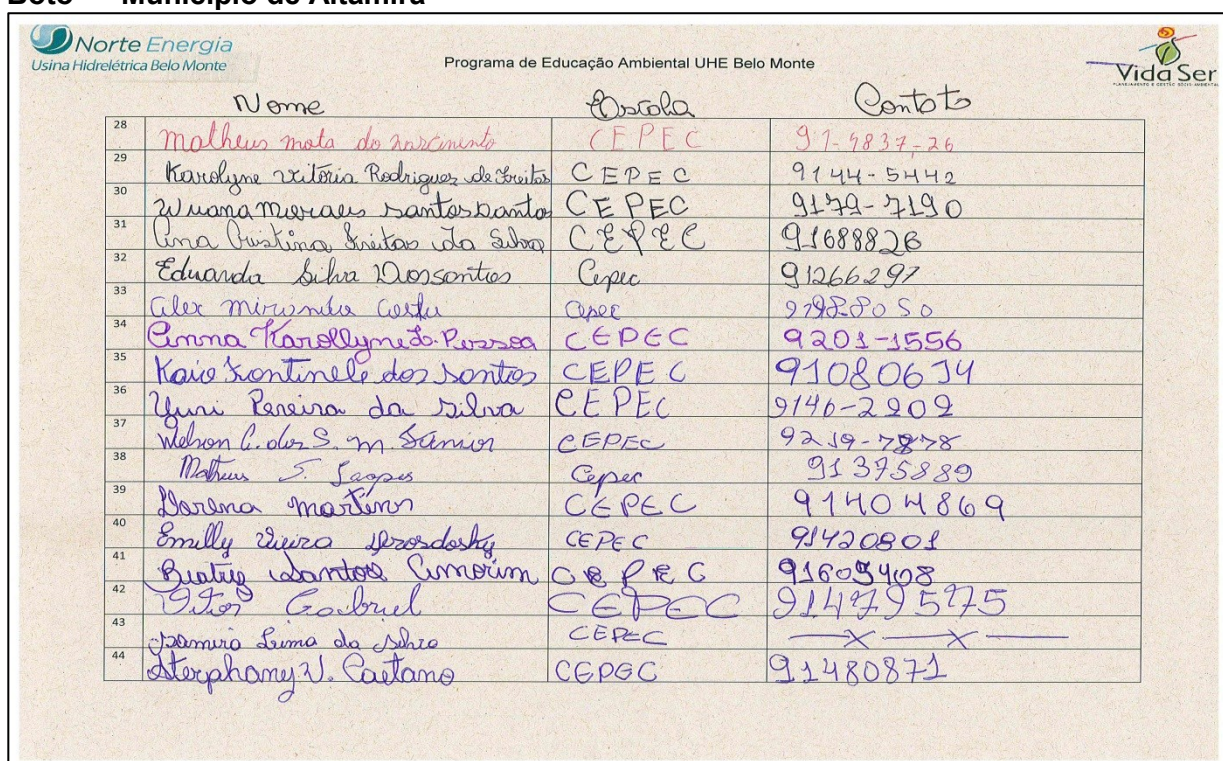 Município de Altamira
Norte Energia
Usina Hidrelétrica Belo Monte
Programa de Educação Ambiental UHE Belo Monte
Vida Ser
Nome Escola Contato
28 Matheus mota do nascimento CEPEC 91-9837-26
29 Karolyne vitória Rodrigues de Freitas CEPEC 9144-5442
30 Wuana moraes santos santos CEPEC 9179-7190
31 Ana Cristina Freitas da Silva CEPEC 91688826
32 Eduarda Silva Dos santos Cepec 91266297
33 Alex miranda Costa Cepec 91988050
34 Anna Karollyne Pessoa CEPEC 9201-1556
35 Kaio Fontinele dos santos CEPEC 91080634
36 Yuri Pereira da silva CEPEC 9146-2202
37 Welson C. dos S. m. Júnior CEPEC 9219-7878
38 Matheus S. Cepec 91375889
39 Lorena martins CEPEC 91404869
40 Emilly Vieira CEPEC 91420801
41 Beatriz Santos Amorim CEPEC
42 Vitor Gabriel CEPEC 914795275
43 Lima da CEPEC —x—x—
44 Sterphany V. Caetano CEPEC 91480871